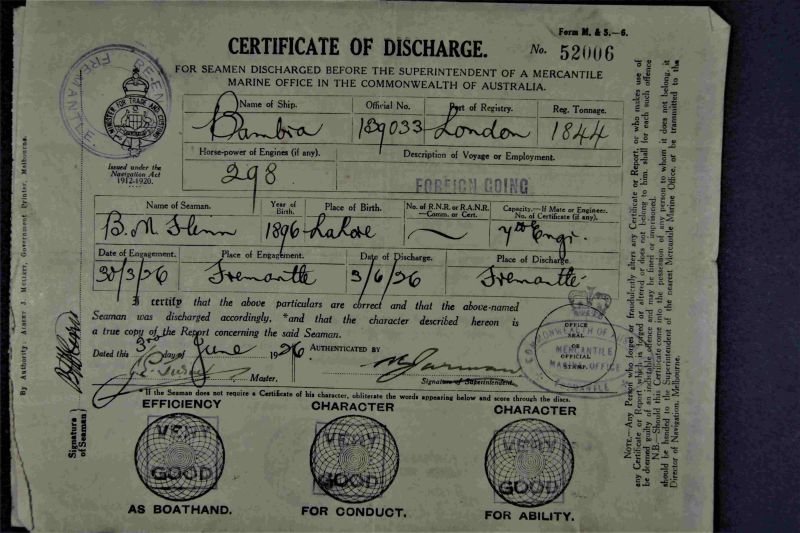 Form M. & S.—6.
CERTIFICATE OF DISCHARGE.
No. 52006
FOR SEAMEN DISCHARGED BEFORE THE SUPERINTENDENT OF A MERCANTILE
MARINE OFFICE IN THE COMMONWEALTH OF AUSTRALIA.
FREMANTLE.
MINISTER FOR TRADE AND CUSTOMS
Issued under the
Navigation Act
1912-1920.
Name of Ship. Official No. Port of Registry. Reg. Tonnage.
Bambra 139033 London 1844
Horse-power of Engines (if any). Description of Voyage or Employment.
298 FOREIGN GOING
Name of Seaman. Year of Birth. Place of Birth. No. of R.N.R. or R.A.N.R. Comm. or Cert. Capacity.—If Mate or Engineer, No. of Certificate (if any).
B. M. Glenn 1896 Lahore 7th Engr.
Date of Engagement. Place of Engagement. Date of Discharge. Place of Discharge.
30/3/26 Fremantle 3/6/26 Fremantle
I certify that the above particulars are correct and that the above-named
Seaman was discharged accordingly, *and that the character described hereon is
a true copy of the Report concerning the said Seaman.
Dated this 3rd day of June 1926 AUTHENTICATED BY
Master.
Signature of Superintendent.
OFFICE
SEAL
OR
OFFICIAL
STAMP.
COMMONWEALTH OF
MERCANTILE
MARINE OFFICE
FREMANTLE
* If the Seaman does not require a Certificate of his character, obliterate the words appearing below and score through the discs.
EFFICIENCY CHARACTER CHARACTER
VERY VERY VERY
GOOD GOOD GOOD
AS BOATHAND. FOR CONDUCT. FOR ABILITY.
Signature
of Seaman
By Authority: ALBERT J. MULLETT, Government Printer, Melbourne.
NOTE.—Any Person who forges or fraudulently alters any Certificate or Report, or who makes use of
any Certificate or Report which is forged or altered or does not belong to him, shall for each such offence
be deemed guilty of an indictable offence and may be fined or imprisoned.
N.B.—Should this Certificate come into the possession of any person to whom it does not belong, it
should be handed to the Superintendent of the nearest Mercantile Marine Office, or be transmitted to the
Director of Navigation, Melbourne.